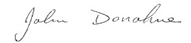 John Donohue